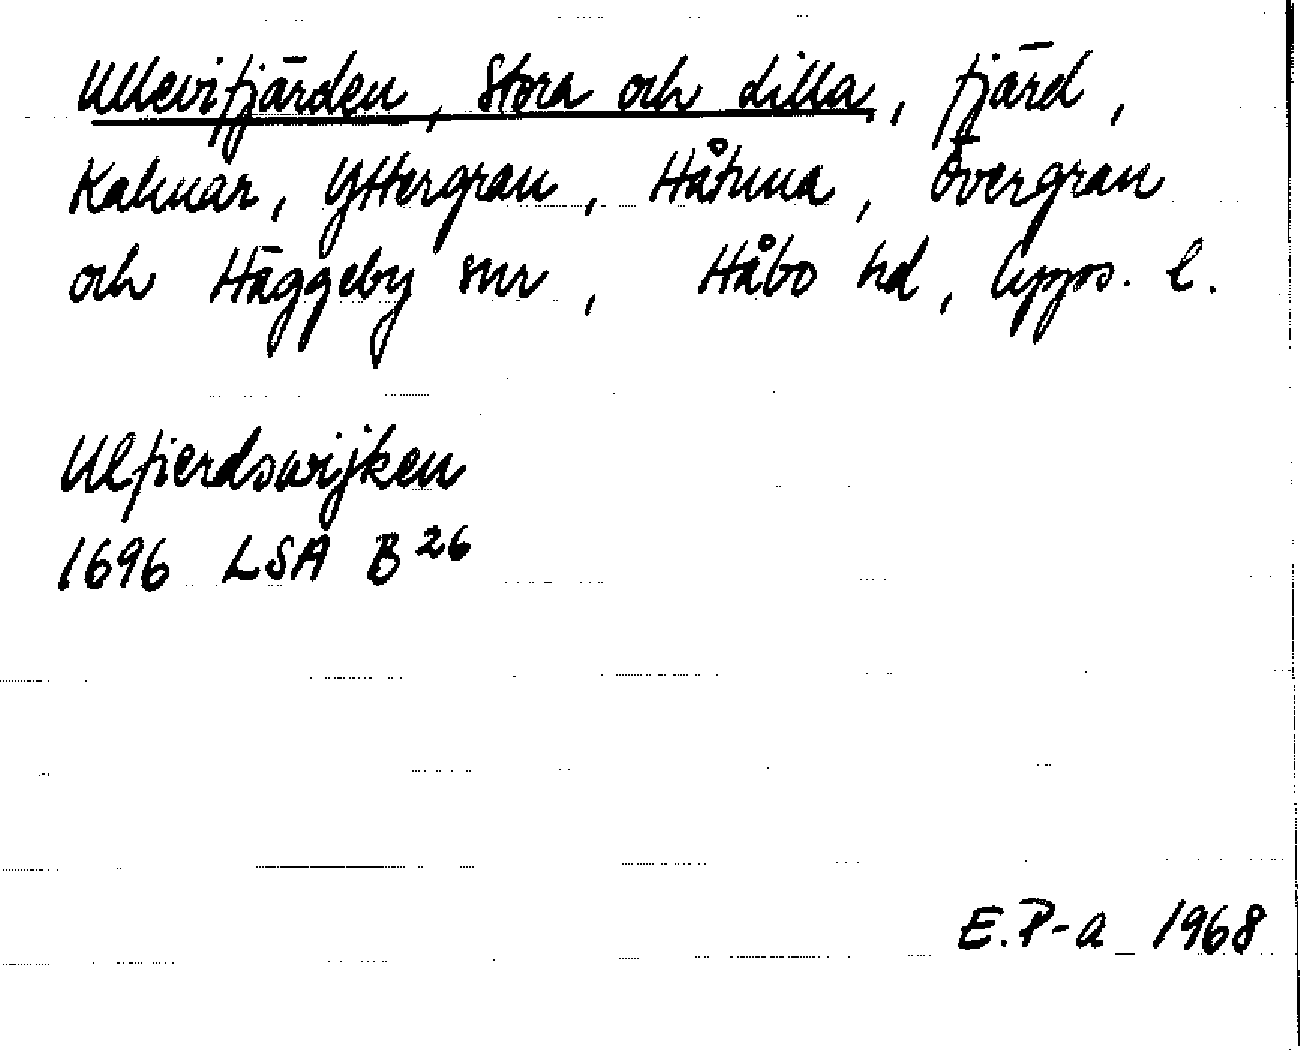 Ullevifjärden, Stora och Lilla, fjärd,
Kalmar, Yttergran, Håtuna, Övergran
och Häggeby snr, Håbo hd, Upps. l.
Ulfierdswijken
1696 LSA B 26
E.P-a 1968